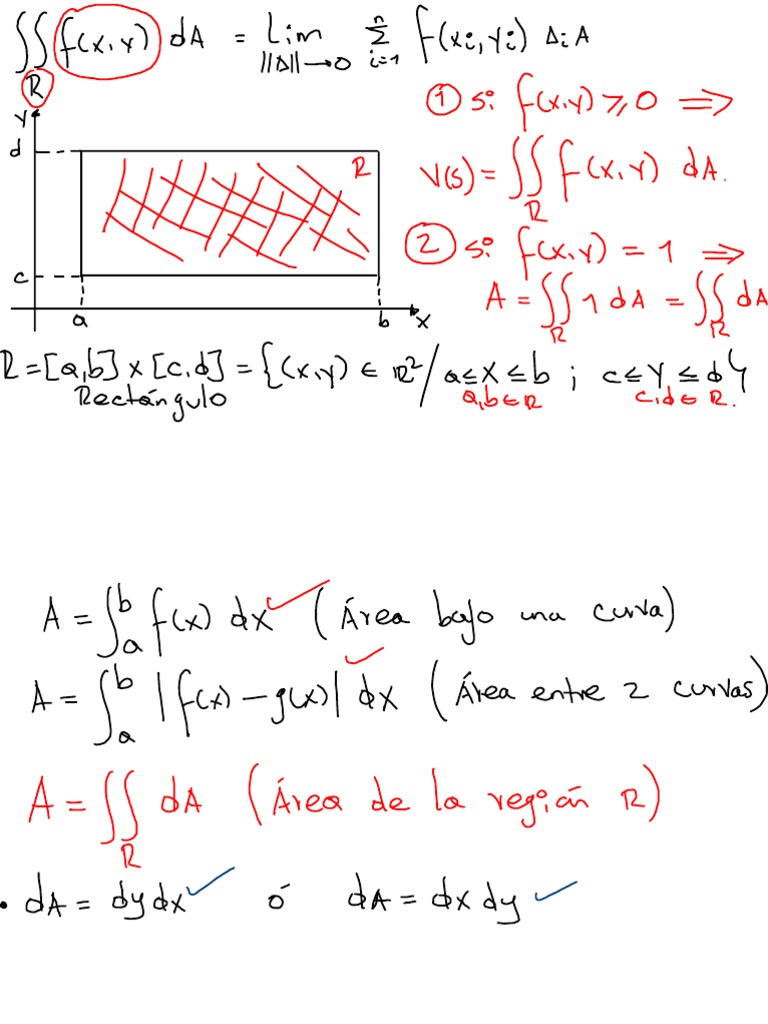 ∬_R f(x,y) dA = Lim_{||Δ||→0} Σ_{i=1}^{n} f(xi,yi) ΔiA
① si f(x,y) ≥ 0 ⇒
V(s) = ∬_R f(x,y) dA.
② si f(x,y) = 1 ⇒
A = ∬_R 1 dA = ∬_R dA
y
d
R
c
a
b
x
R = [a,b] x [c,d] = {(x,y) ∈ R² / a ≤ x ≤ b ; c ≤ y ≤ d}
Rectángulo a,b ∈ R c,d ∈ R.
A = ∫_a^b f(x) dx ✓ (Área bajo una curva)
A = ∫_a^b |f(x) – g(x)| dx ✓ (Área entre 2 curvas)
A = ∬_R dA (Área de la región R)
• dA = dy dx ✓ ó dA = dx dy ✓